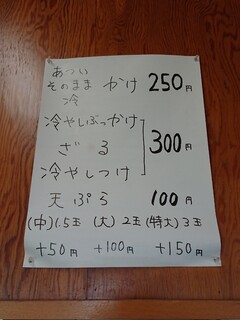 あつい
そのまま かけ 250円
冷
冷やしぶっかけ
ざる 300円
冷やしつけ
天ぷら 100円
(中)1.5玉 (大)2玉 (特大)3玉
+50円 +100円 +150円